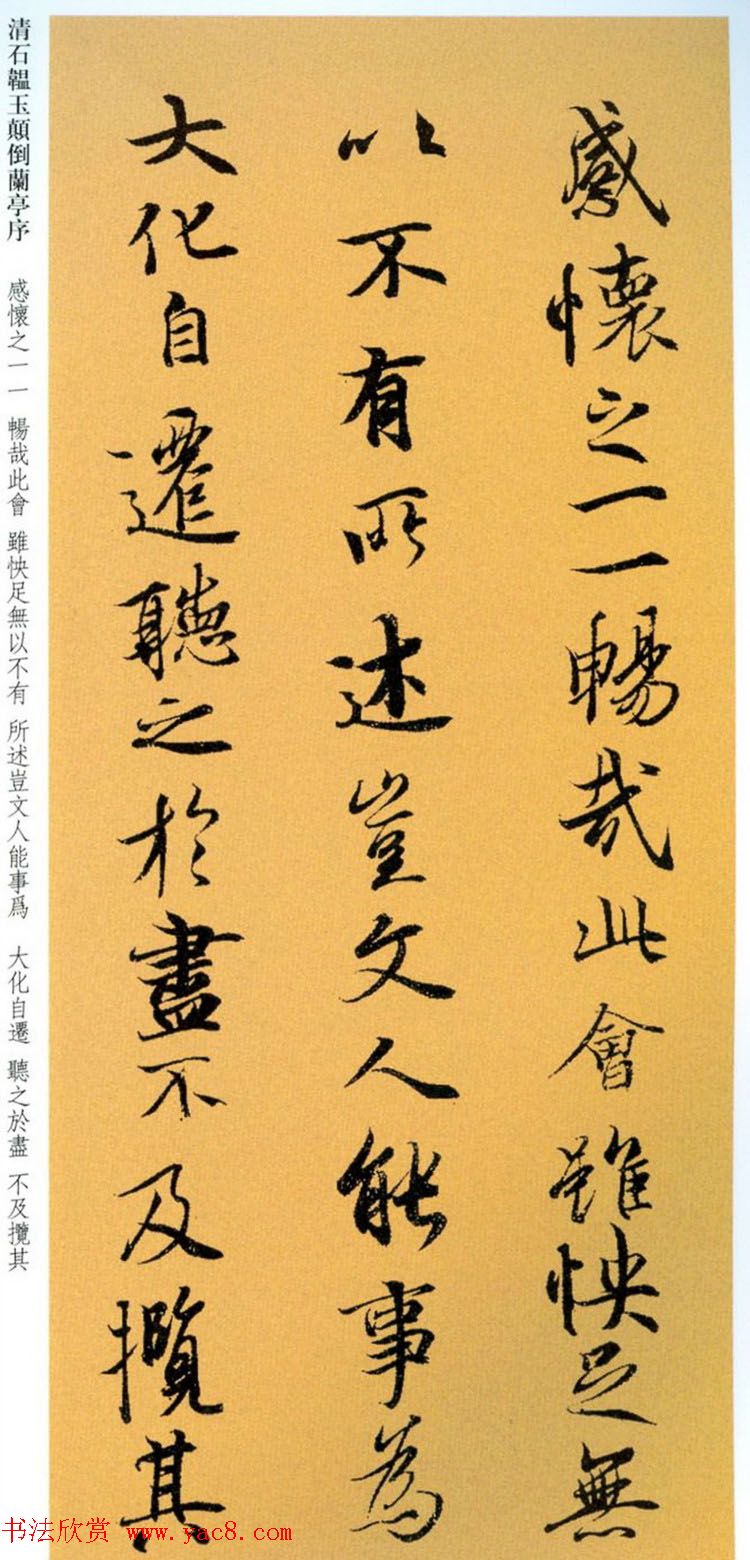 感懷之一一暢哉此會雖怏足無
以不有所述豈文人能事為
大化自遷聽之於盡不及攬其
清石韞玉顛倒蘭亭序 感懷之一一 暢哉此會 雖怏足無以不有 所述豈文人能事爲 大化自遷 聽之於盡 不及攬其
书法欣赏 www.yac8.com